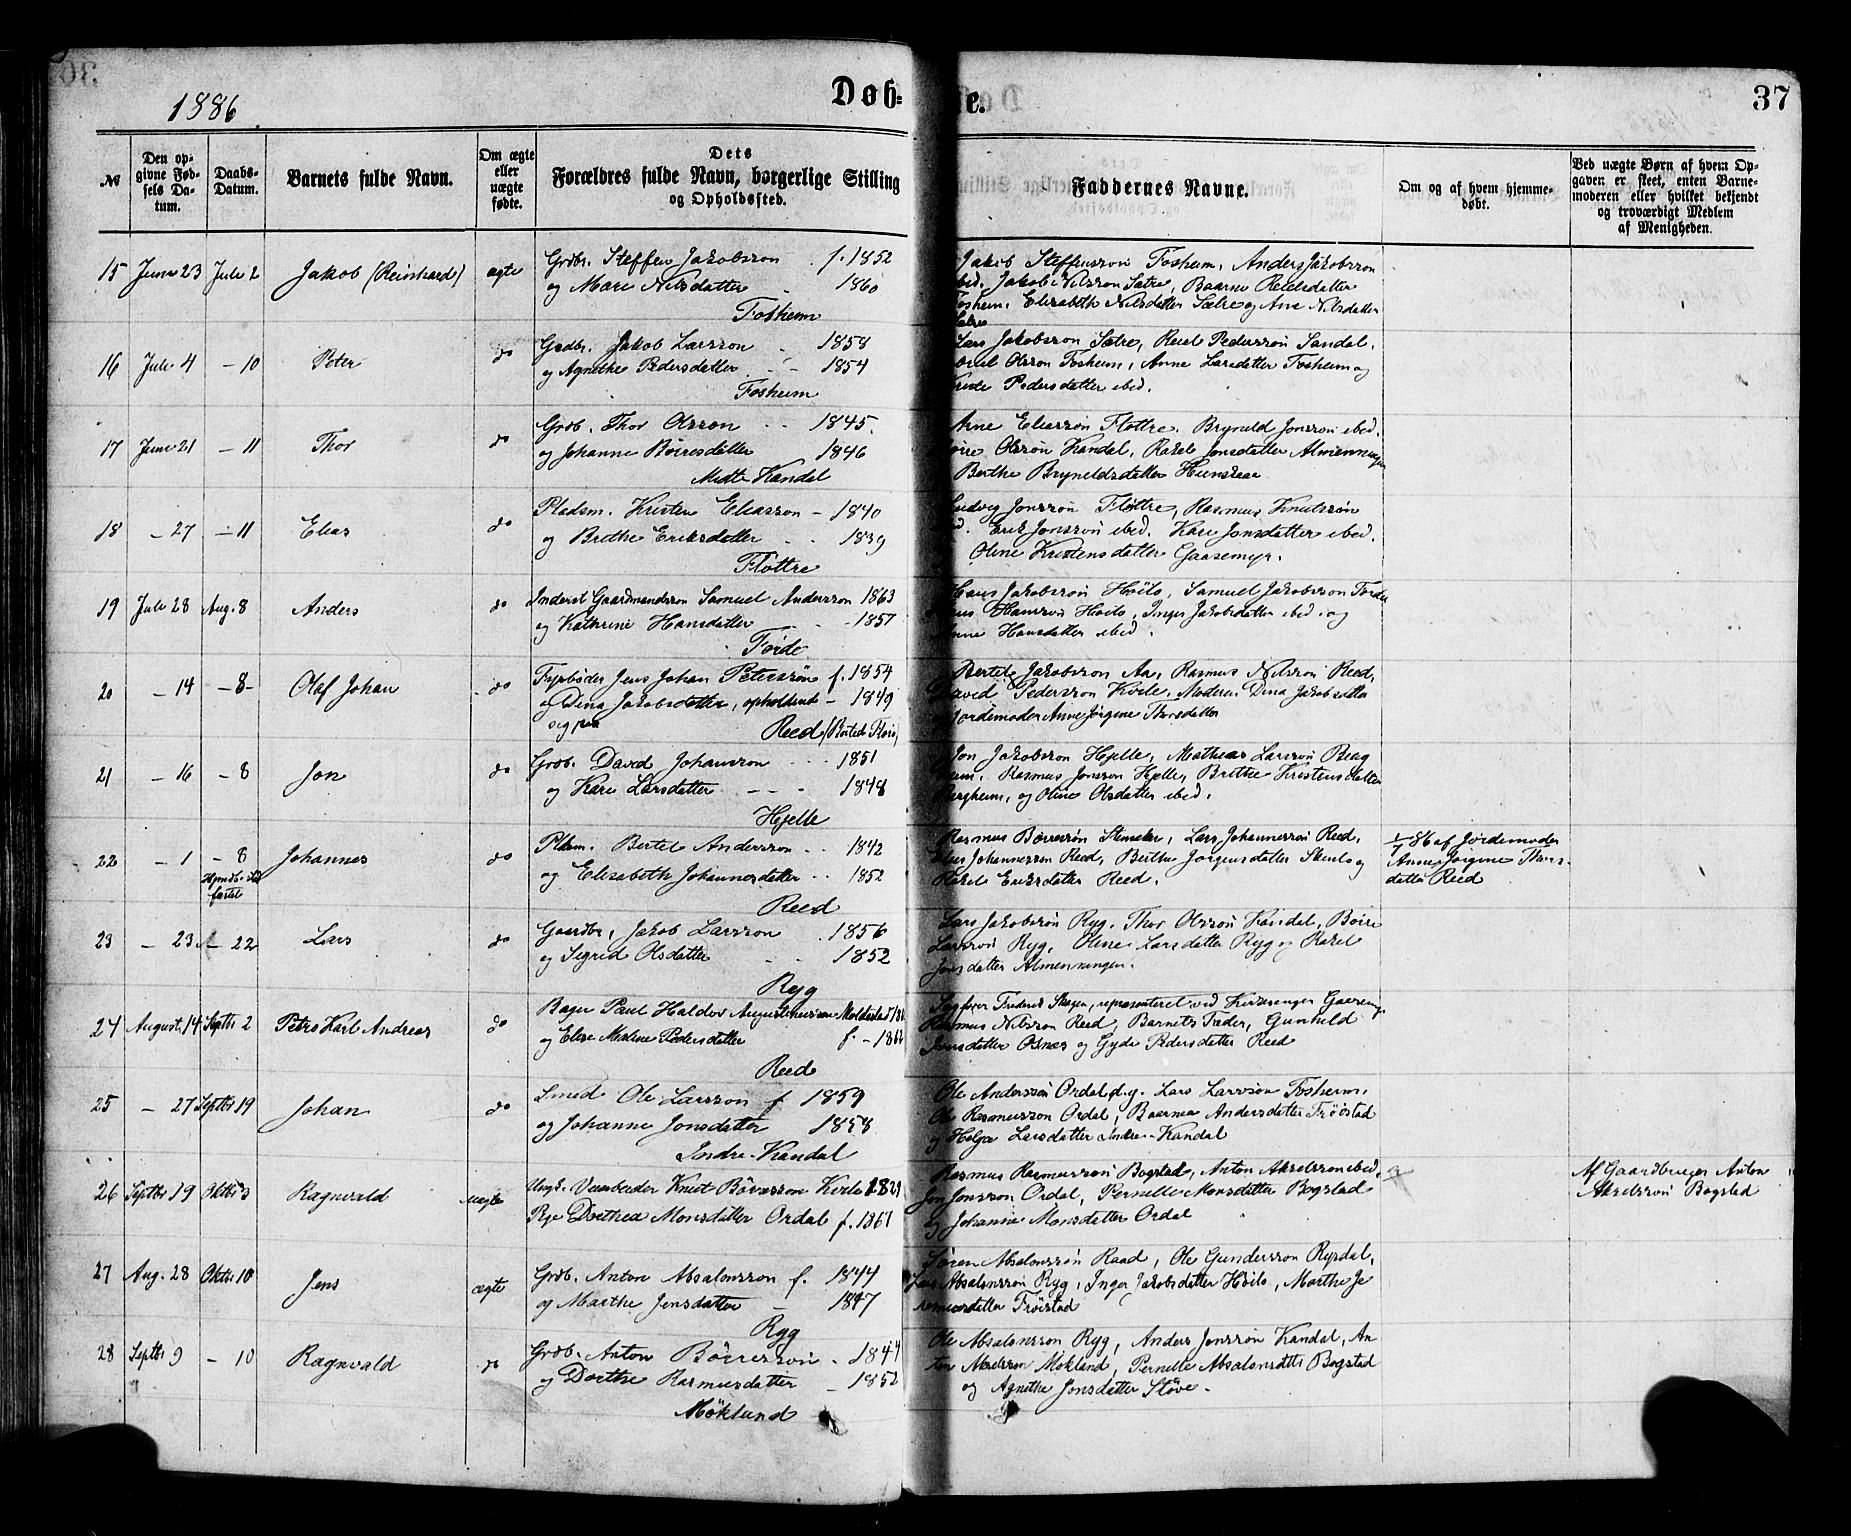 1886
Døb=
te.
37
№
Den op-
givne Fød-
sels Da-
tum.
Daabs-
Datum.
Barnets fulde Navn.
Om ægte
eller
uægte
fødte.
Dets
Forældres fulde Navn, borgerlige Stilling
og Opholdssted.
Faddernes Navne.
Om og af hvem hjemme-
døbt.
Ved uægte Børn af hvem Op-
gaven er skeet, enten Barne-
moderen eller hvilket bekjendt
og troværdigt Medlem
af Menigheden.
15 Juni 23 Juli 2 Jakob (Reinhardt) ægte Grdbr. Steffen Jakobsson f. 1852
og Mari Nilsdatter 1860
Fosheim
Jakob Steffensson Fosheim, Anders Jakobsson
ibid. Jakob Nilsson Sætre, Baarni Reielsdatter
Fosheim, Elisabeth Nilsdatter Sætre og Ane Nilsdatter
Sætre
16 Juli 4 - 10 Peter do Grdbr. Jakob Larsson - 1858
og Agnethe Pedersdatter - 1854
Fosheim
Lars Jakobsson Sætre, Reiel Pedersson Sandal,
Olsson Fosheim, Anne Larsdatter Fosheim og
Pedersdatter ibid.
17 Juni 21 - 11 Thor do Grdb. Thor Olsson - - 1845.
og Johanne Börresdatter 1846
Midt-Kandal
Arne Eliasson Flöttre, Bryneld Jonsson ibid.
Olsson Kandal, Rakel Jonsdatter Almenningen
Berthe Bryneldsdatter
18 - 27 - 11 Elias do Pladsm. Kristen Eliasson - 1840
og Brethe Eriksdatter - - 1839
Flöttre
Ludvig Jonsson Flöttre, Rasmus Knutsson
ibid. Erik Jonsson ibid. Kari Jonsdatter ibid.
Oline Kristensdatter Gaasemyr.
19 Juli 28 Aug. 8 Anders do Inderst Gaardmandssön Samuel Andersson 1863
og Kathrine Hansdatter - - 1857
Förde
Hans Jakobsson Höilo, Samuel Jakobsson Förde
Hansson Höilo, Inger Jakobsdatter ibid. og
Anne Hansdatter ibid.
20 - 14 - 8 - Olaf Johan do Fyrböder Jens Johan Peterssön f. 1854
og Dina Jakobsdatter, opholdende - 1849
sig paa Reed (Bosted: Florö)
Bertel Jakobsson Aa, Rasmus Nilsson Reed,
David Pedersson Kvile, Moderen Dina Jakobsdatter
og Jordemoder Anne Jörgine Thorsdatter
21 - 16 - 8 Jon do Grdb. David Johansson - - - 1851
og Kari Larsdatter - - - 1848
Hjelle
Jon Jakobsson Hjelle, Mathias Larsson Berg
heim. Rasmus Jonsson Hjelle, Brethe Kristensdatter
Bergheim, og Oline Olsdatter ibid.
22 - 1 - 8 Johannes do Pldsm. Bertel Andersson - - 1842
Hjmdb. stad
fæstet
og Elisabeth Johannesdatter - - 1852
Reed
Rasmus Börresson Lars Johannesson Reed,
Johannesson Reed, Berthe Jörgensdatter og
Rakel Eriksdatter Reed.
1/7 86 af Jordemoder
Anne Jörgine Thors-
datter Reed
23 - 23 - 22 Lars do Gaardbr. Jakob Larsson 1856
og Sigrid Olsdatter - - 1852
Ryg
Lars Jakobsson Ryg, Thor Olsson Kandal, Börre
Larsson Ryg, Oline Larsdatter Ryg og Rakel
Jonsdatter Almenningen.
24 August 14 Septbr 2 Petro Karl Andreas do Bager Paul Haldor Augustinussen Moldestad
og Elise Maline Pedersdatter f. - 186
Reed
Sagförer Frederik representeret ved Kirkesanger
Rasmus Nilsson Reed, Barnets Fader, Gunhild
Iversdatter Osnæs og Gyda Pedersdatter Reed
25 - 27 Septbr 19 Johan do Smed Ole Larsson f. 1859
og Johanne Jonsdatter 1858
Indre-Kandal
Ole Andersson Ordal d.y. Lars Larsson Fosheim.
Ole Rasmusson Ordal, Baarni Andersdatter Fröistad
og Helga Larsdatter Indre-Kandal
26 Septbr 19 Oktbr 3 Ragnvald uægte Ungk. Veiarbeider Knut Börresson Kvile 1829
Pge Dorthea Monsdatter Ordal f. 1861
Rasmus Rasmusson Bogstad, Anton Akselsson ibid.
Jon Jonsson Ordal, Pernelle Monsdatter Bogstad
og Johanne Monsdatter Ordal
Af Gaardbruger Anton
Akselsson Bogstad
27 Aug. 28 Oktbr 10 Jens ægte Grdb. Anton Absalonsson f. 1844
og Marthe Jensdatter - 1847
Ryg
Sören Absalonsson Raad, Ole Gundersson Rysdal,
Lars Absalonsson Ryg, Inger Jakobsdatter Höilo, Marthe Je
remiasdatter Fröistad
28 Septbr 9 - 10 Ragnvald do Grdb. Anton Börresson - 1844
og Dorthe Rasmusdatter - 1852
Mökland
Ole Absalonsson Ryg, Anders Jonsson Kandal, An
ton Akselsson Mökland, Pernelle Absalonsdatter Bogstad
og Agnethe Jonsdatter Stöve.